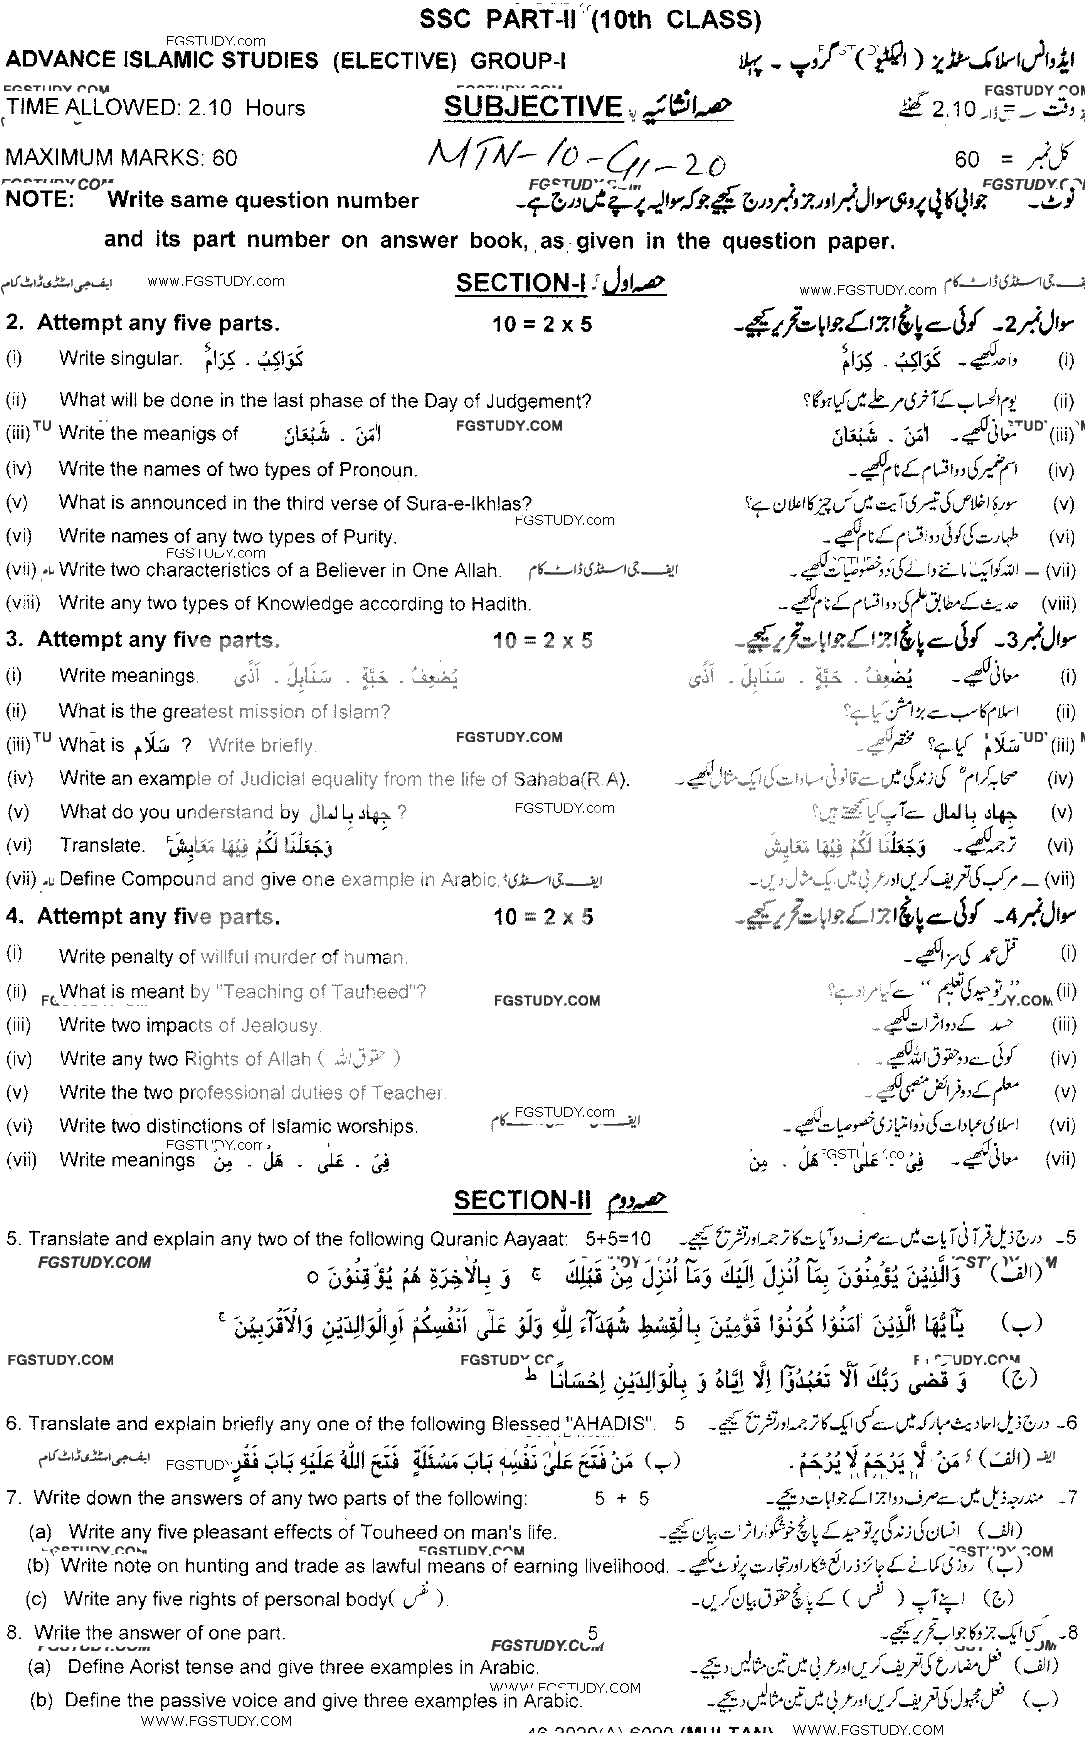 SSC PART-II (10th CLASS)
FGSTUDY.com
ADVANCE ISLAMIC STUDIES (ELECTIVE) GROUP-I ایڈوانس اسلامک سٹڈیز ( الیکٹیو ) گروپ ۔ پہلا
FGSTUDY.COM FGSTUDY.COM
TIME ALLOWED: 2.10 Hours SUBJECTIVE حصہ انشائیہ وقت = 2.10 گھنٹے
MAXIMUM MARKS: 60 MTN-10-G1-20 کل نمبر = 60
FGSTUDY.COM FGSTUDY.COM
NOTE: Write same question number نوٹ۔ جوابی کاپی پر وہی سوال نمبر اور جزو نمبر درج کیجیے جو کہ سوالیہ پرچے میں درج ہے۔
and its part number on answer book, as given in the question paper.
ایف جی اسٹڈی ڈاٹ کام www.FGSTUDY.com SECTION-I حصہ اول www.FGSTUDY.com ایف جی اسٹڈی ڈاٹ کام
2. Attempt any five parts. 10 = 2 x 5 سوال نمبر 2۔ کوئی سے پانچ اجزا کے جوابات تحریر کیجیے۔
(i) Write singular. كَوَاكِبُ ۔ كِرَامٌ واحد لکھیے۔ كَوَاكِبُ ۔ كِرَامٌ (i)
(ii) What will be done in the last phase of the Day of Judgement? یوم الحساب کے آخری مرحلے میں کیا ہوگا؟ (ii)
(iii) Write the meanigs of اٰمَنَ ۔ شَبْعَانَ FGSTUDY.COM معانی لکھیے۔ اٰمَنَ ۔ شَبْعَانَ (iii)
(iv) Write the names of two types of Pronoun. اسم ضمیر کی دو اقسام کے نام لکھیے۔ (iv)
(v) What is announced in the third verse of Sura-e-Ikhlas? سورۃ اخلاص کی تیسری آیت میں کس چیز کا اعلان ہے؟ (v)
FGSTUDY.com
(vi) Write names of any two types of Purity. طہارت کی کوئی دو اقسام کے نام لکھیے۔ (vi)
FGSTUDY.com
(vii) Write two characteristics of a Believer in One Allah. ایف جی اسٹڈی ڈاٹ کام اللہ کو ایک ماننے والے کی دو خصوصیات لکھیے۔ (vii)
(viii) Write any two types of Knowledge according to Hadith. حدیث کے مطابق علم کی دو اقسام کے نام لکھیے۔ (viii)
3. Attempt any five parts. 10 = 2 x 5 سوال نمبر 3۔ کوئی سے پانچ اجزا کے جوابات تحریر کیجیے۔
(i) Write meanings. يُضٰعِفُ ۔ حَبَّةٍ ۔ سَنَابِلَ ۔ اَذًى معانی لکھیے۔ يُضٰعِفُ ۔ حَبَّةٍ ۔ سَنَابِلَ ۔ اَذًى (i)
(ii) What is the greatest mission of Islam? اسلام کا سب سے بڑا مشن کیا ہے؟ (ii)
(iii) What is سَلَام ? Write briefly. FGSTUDY.COM سَلَام کیا ہے؟ مختصر لکھیے۔ (iii)
(iv) Write an example of Judicial equality from the life of Sahaba(R.A). صحابہ کرامؓ کی زندگی میں سے قانونی مساوات کی ایک مثال لکھیے۔ (iv)
(v) What do you understand by جہاد بِالمال ? FGSTUDY.com جہاد بِالمال سے آپ کیا سمجھتے ہیں؟ (v)
(vi) Translate. وَجَعَلْنَا لَكُمْ فِيْهَا مَعَايِشَ ترجمہ لکھیے۔ وَجَعَلْنَا لَكُمْ فِيْهَا مَعَايِشَ (vi)
(vii) Define Compound and give one example in Arabic. ایف جی اسٹڈی مرکب کی تعریف کریں اور عربی میں ایک مثال دیں۔ (vii)
4. Attempt any five parts. 10 = 2 x 5 سوال نمبر 4۔ کوئی سے پانچ اجزا کے جوابات تحریر کیجیے۔
(i) Write penalty of willful murder of human. قتل عمد کی سزا لکھیے۔ (i)
(ii) What is meant by "Teaching of Tauheed"? FGSTUDY.COM "توحید کی تعلیم" سے کیا مراد ہے؟ (ii)
(iii) Write two impacts of Jealousy. حسد کے دو اثرات لکھیے۔ (iii)
(iv) Write any two Rights of Allah ( حقوق اللہ ) کوئی سے دو حقوق اللہ لکھیے۔ (iv)
(v) Write the two professional duties of Teacher. معلم کے دو فرائض منصبی لکھیے۔ (v)
(vi) Write two distinctions of Islamic worships. FGSTUDY.com اسلامی عبادات کی دو امتیازی خصوصیات لکھیے۔ (vi)
FGSTUDY.com
(vii) Write meanings فِىْ ۔ عَلٰى ۔ هَلْ ۔ مِنْ معانی لکھیے۔ فِىْ ۔ عَلٰى ۔ هَلْ ۔ مِنْ (vii)
SECTION-II حصہ دوم
5. Translate and explain any two of the following Quranic Aayaat: 5+5=10 5۔ درج ذیل قرآنی آیات میں سے صرف دو آیات کا ترجمہ اور تشریح کیجیے۔
FGSTUDY.COM
(الف) وَالَّذِيْنَ يُؤْمِنُوْنَ بِمَآ اُنْزِلَ اِلَيْكَ وَمَآ اُنْزِلَ مِنْ قَبْلِكَ ۚ وَ بِالْاٰخِرَةِ هُمْ يُوْقِنُوْنَ ○
(ب) يٰٓاَيُّهَا الَّذِيْنَ اٰمَنُوْا كُوْنُوْا قَوّٰمِيْنَ بِالْقِسْطِ شُهَدَآءَ لِلّٰهِ وَلَوْ عَلٰٓى اَنْفُسِكُمْ اَوِالْوَالِدَيْنِ وَالْاَقْرَبِيْنَ ۚ
FGSTUDY.COM
(ج) وَ قَضٰى رَبُّكَ اَلَّا تَعْبُدُوْٓا اِلَّآ اِيَّاهُ وَ بِالْوَالِدَيْنِ اِحْسَانًا ط
6. Translate and explain briefly any one of the following Blessed "AHADIS". 5 6۔ درج ذیل احادیث مبارکہ میں سے کسی ایک کا ترجمہ اور تشریح کیجیے۔
(الف) مَنْ لَّا يَرْحَمْ لَا يُرْحَمْ. (ب) مَنْ فَتَحَ عَلٰى نَفْسِهٖ بَابَ مَسْئَلَةٍ فَتَحَ اللّٰهُ عَلَيْهِ بَابَ فَقْرٍ FGSTUDY ایف جی اسٹڈی ڈاٹ کام
7. Write down the answers of any two parts of the following: 5 + 5 7۔ مندرجہ ذیل میں سے صرف دو اجزا کے جوابات دیجیے۔
(a) Write any five pleasant effects of Touheed on man's life. (الف) انسان کی زندگی پر توحید کے پانچ خوشگوار اثرات بیان کیجیے۔
FGSTUDY.COM FGSTUDY.COM
(b) Write note on hunting and trade as lawful means of earning livelihood. (ب) روزی کمانے کے جائز ذرائع شکار اور تجارت پر نوٹ لکھیے۔
(c) Write any five rights of personal body( نفس ). (ج) اپنے آپ ( نفس ) کے پانچ حقوق بیان کریں۔
8. Write the answer of one part. 5 8۔ کسی ایک جزو کا جواب تحریر کیجیے۔
FGSTUDY.COM
(a) Define Aorist tense and give three examples in Arabic. (الف) فعل مضارع کی تعریف کریں اور عربی میں تین مثالیں دیجیے۔
WWW.FGSTUDY.COM
(b) Define the passive voice and give three examples in Arabic. (ب) فعل مجہول کی تعریف کریں اور عربی میں تین مثالیں دیجیے۔
WWW.FGSTUDY.COM 46-2020(A)-6000 (MULTAN) WWW.FGSTUDY.COM